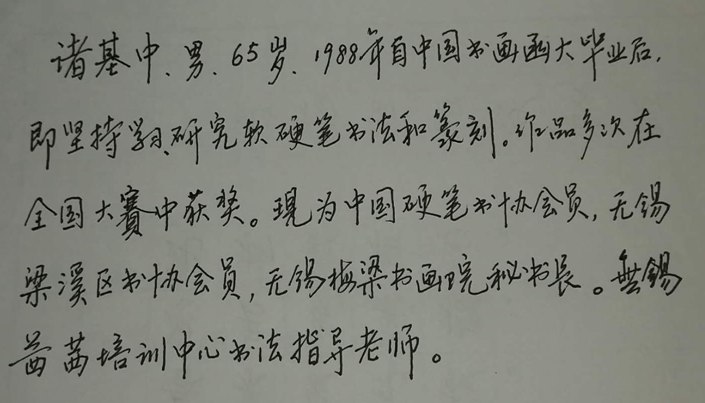 诸基中、男、65岁、1988年自中国书画函大毕业后,
即坚持学习、研究软硬笔书法和篆刻。作品多次在
全国大赛中获奖。現为中国硬笔书协会员,无锡
梁溪区书协会员,无锡梅梁书画院秘书长。無錫
茜茜培训中心书法指导老师。